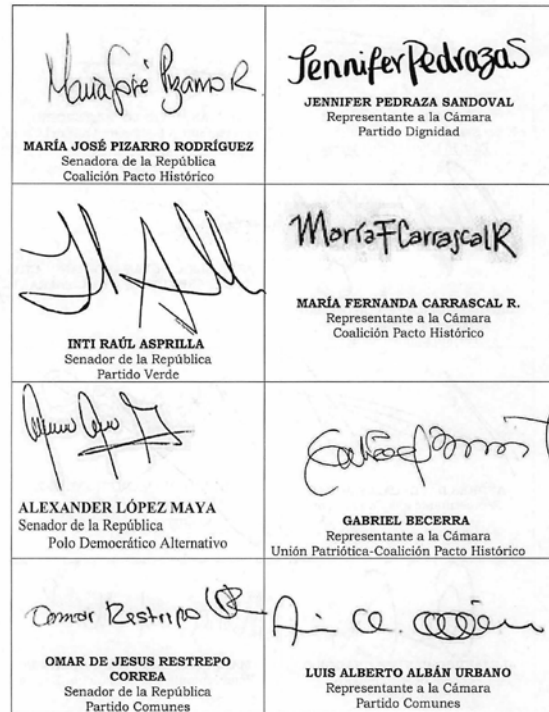 María José Pizarro R.
MARÍA JOSÉ PIZARRO RODRÍGUEZ
Senadora de la República
Coalición Pacto Histórico
Jennifer Pedraza S
JENNIFER PEDRAZA SANDOVAL
Representante a la Cámara
Partido Dignidad
INTI RAÚL ASPRILLA
Senador de la República
Partido Verde
María F Carrascal R
MARÍA FERNANDA CARRASCAL R.
Representante a la Cámara
Coalición Pacto Histórico
ALEXANDER LÓPEZ MAYA
Senador de la República
Polo Democrático Alternativo
GABRIEL BECERRA
Representante a la Cámara
Unión Patriótica-Coalición Pacto Histórico
Omar Restrepo
OMAR DE JESUS RESTREPO
CORREA
Senador de la República
Partido Comunes
LUIS ALBERTO ALBÁN URBANO
Representante a la Cámara
Partido Comunes